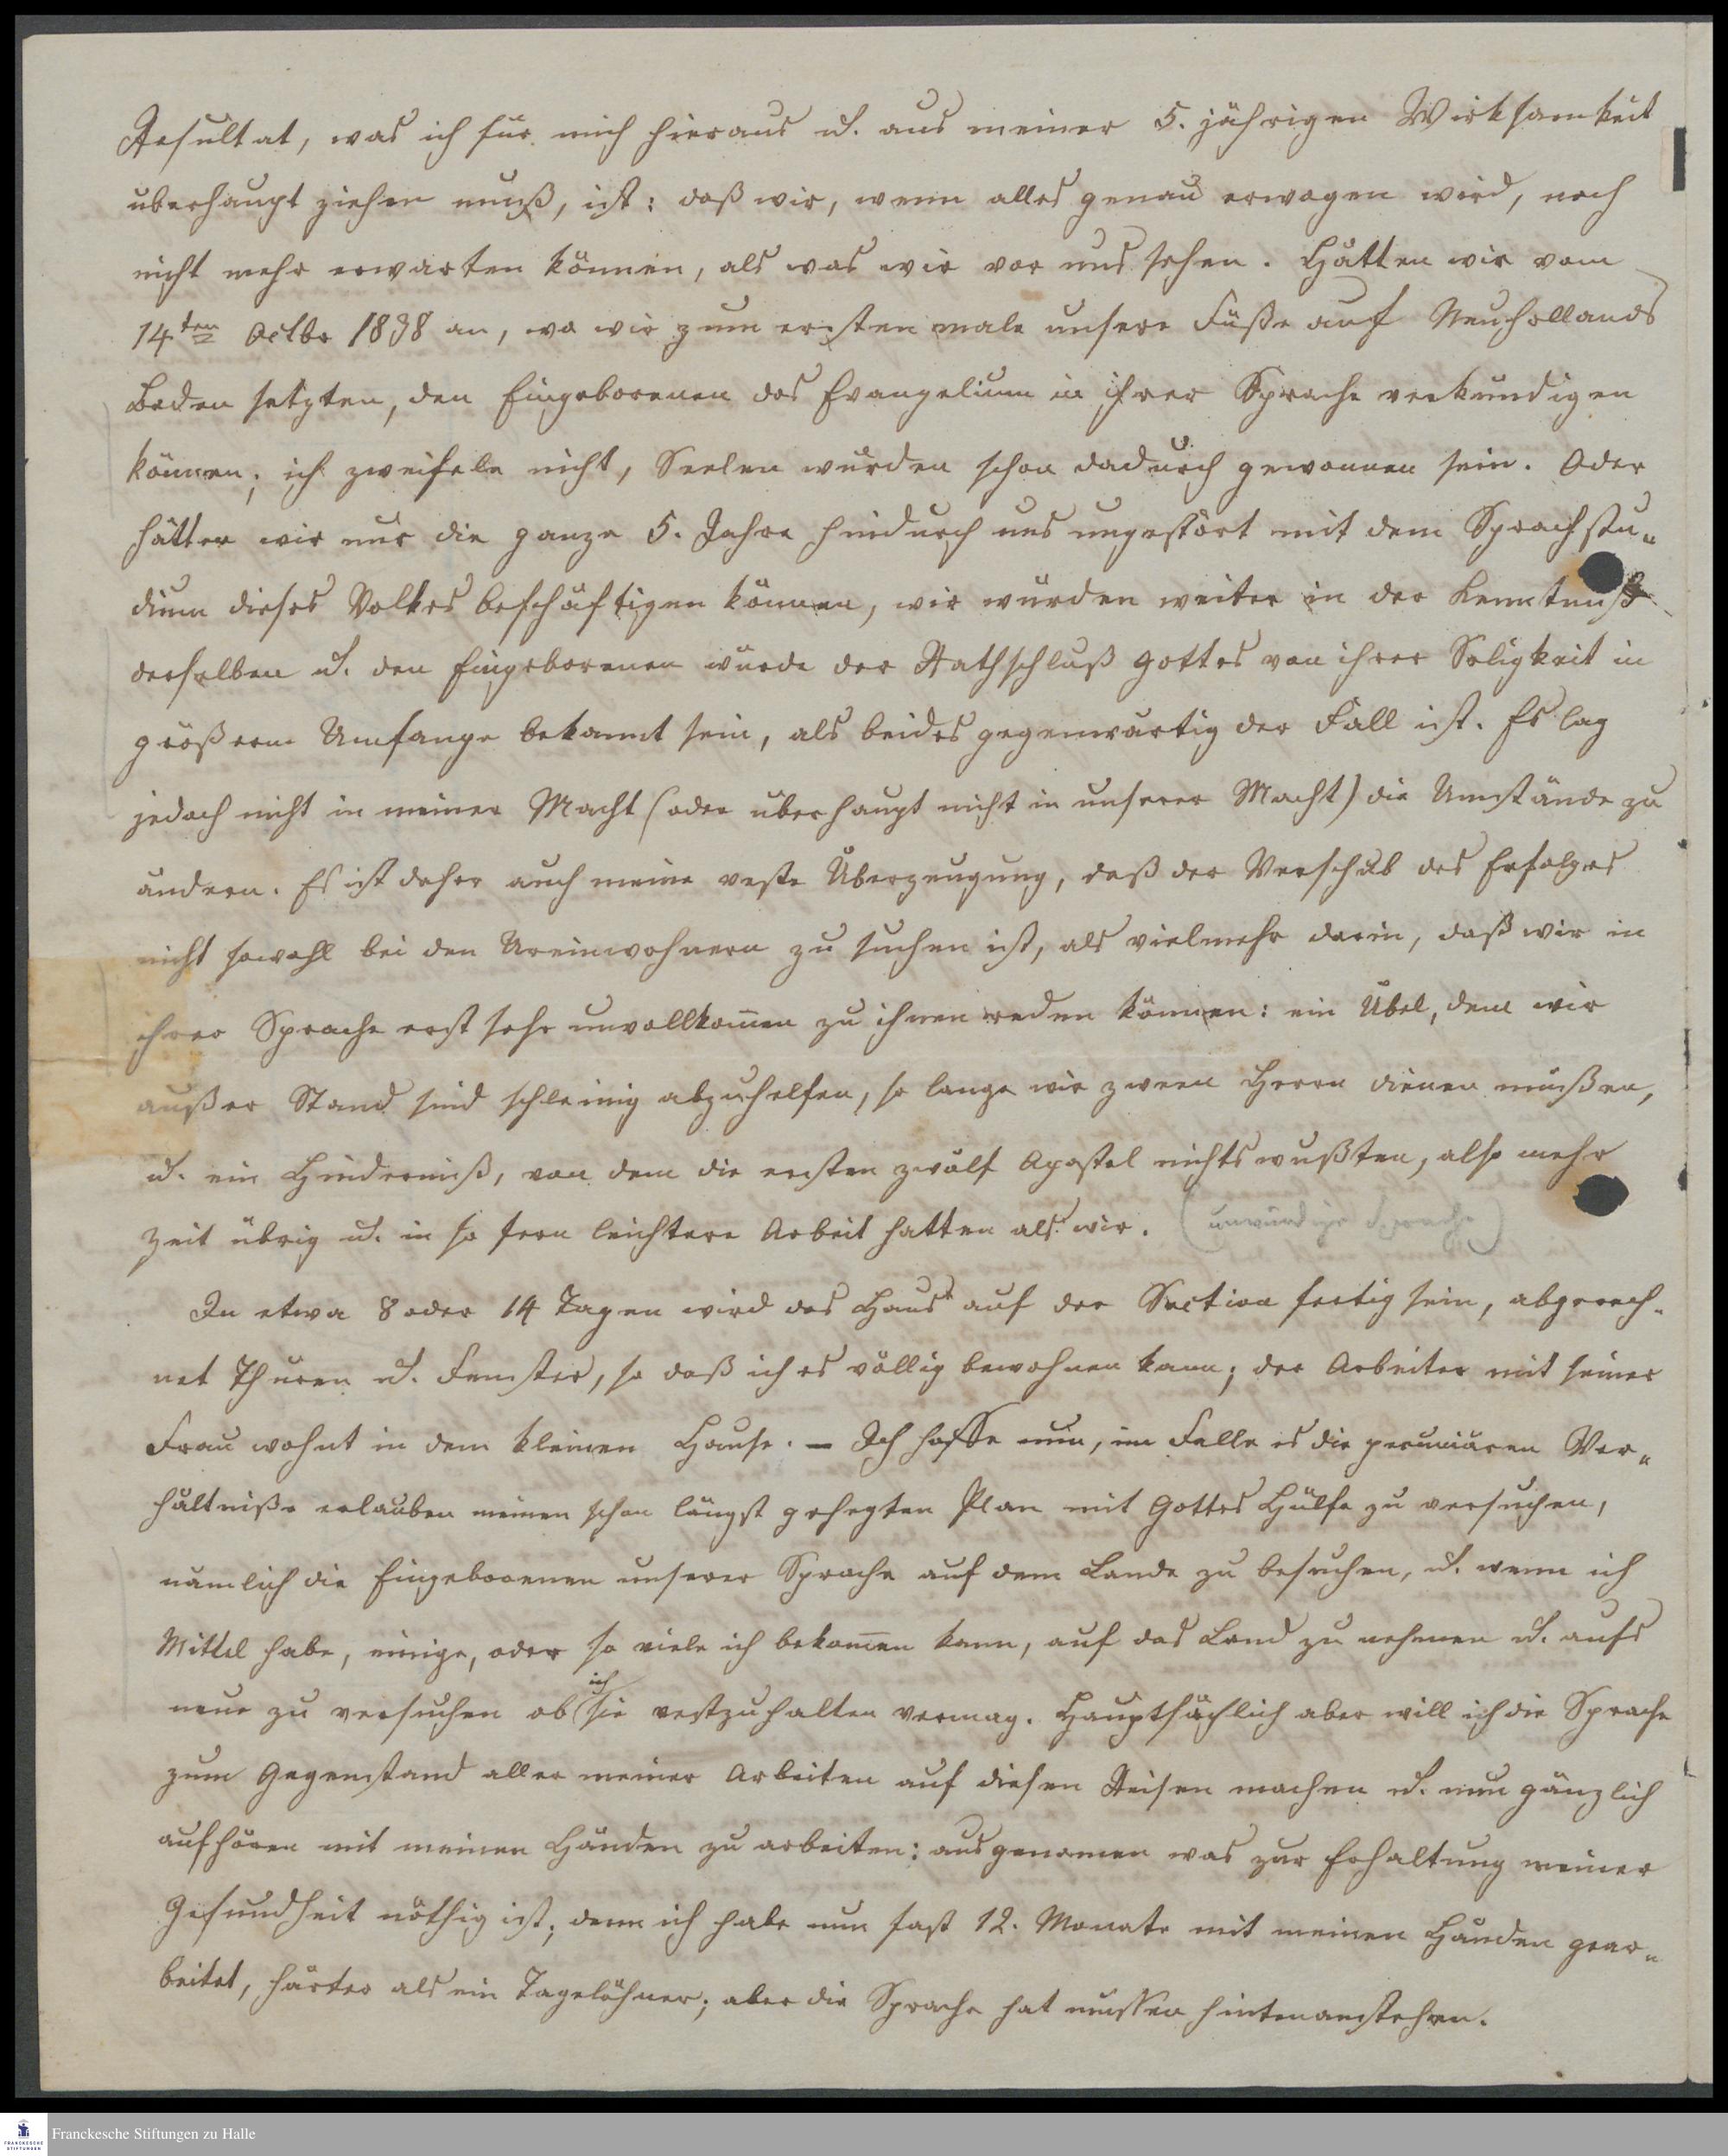 Resultat, was ich für mich hieraus u. aus meiner 5. jährigen Wirksamkeit
überhaupt ziehen muß, ist: daß wir, wenn alles genau erwogen wird, noch
nicht mehr erwarten können, als was wir vor uns sehen. Hätten wir vom
14ten Octbr 1838 an, wo wir zum ersten male unsere Füße auf Neuhollands
Boden setzten, den Eingeborenen das Evangelium in ihrer Sprache verkündigen
können; ich zweifele nicht, Seelen würden schon dadurch gewonnen sein. Oder
hätten wir nur die ganze 5. Jahre hindurch uns ungestört mit dem Sprachstu-
dium dieses Volkes beschäftigen können, wir würden weiter in der Kenntniß
derselben u. den Eingeborenen würde der Rathschluß Gottes von ihrer Seligkeit in
größerm Umfange bekannt sein, als beides gegenwärtig der Fall ist. Es lag
jedoch nicht in meiner Macht (oder überhaupt nicht in unserer Macht) die Umstände zu
ändern. Es ist daher auch meine veste Überzeugung, daß der Verschub des Erfolges
nicht sowohl bei den Ureinwohnern zu suchen ist, als vielmehr darin, daß wir in
ihrer Sprache erst sehr unvollkom̅en zu ihnen reden können: ein Übel, dem wir
außer Stand sind schleinig abzuhelfen, so lange wir zween Herrn dienen müßen,
u. ein Hinderniß, von dem die ersten zwölf Apostel nichts wußten, also mehr
Zeit übrig u. in so fern leichtere Arbeit hatten als wir. (unwürdige Sprache)
In etwa 8 oder 14 Tagen wird das Haus auf der Section fertig sein, abgerech-
net Thüren u. Fenster, so daß ich es völlig bewohnen kann; der Arbeiter mit seiner
Frau wohnt in dem kleinen Hause. – Ich hoffe nun, im Falle es die pecuniären Ver-
hältniße erlauben meinen schon längst gehegten Plan mit Gottes Hülfe zu versuchen,
nämlich die Eingeborenen unserer Sprache auf dem Lande zu besuchen, u. wenn ich
Mittel habe, einige, oder so viele ich bekom̅en kann, auf das Land zu nehmen u. aufs
neue zu versuchen ob ich sie vestzuhalten vermag. Hauptsächlich aber will ich die Sprache
zum Gegenstand aller meiner Arbeiten auf diesen Reisen machen u. nun gänzlich
aufhören mit meinen Händen zu arbeiten: ausgenomen was zur Erhaltung meiner
Gesundheit nöthig ist; denn ich habe nun fast 12. Monate mit meinen Händen gear-
beitet, härter als ein Tagelöhner; aber die Sprache hat müssen hintenanstehen.
Franckesche Stiftungen zu Halle
FRANCKESCHE
STIFTUNGEN